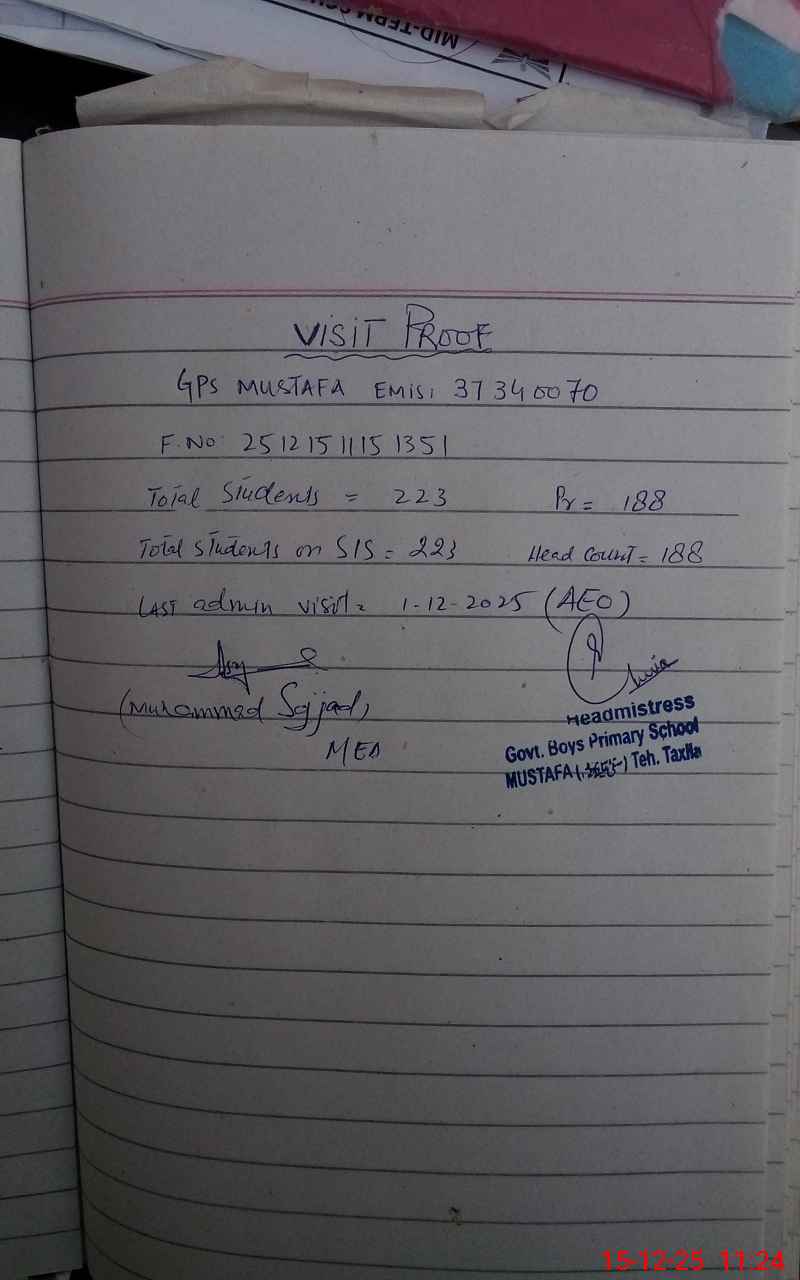 MID-TERM
VISIT PROOF
GPS MUSTAFA EMIS: 37340070
F.No: 25121511151351
Total Students = 223 Pr = 188
Total students on SIS = 223 Head Count = 188
LAST admin visit = 1-12-2025 (AEO)
(Muhammad Sajjad)
MEA
Headmistress
Govt. Boys Primary School
MUSTAFA ( ) Teh. Taxila
15-12-25 11:24